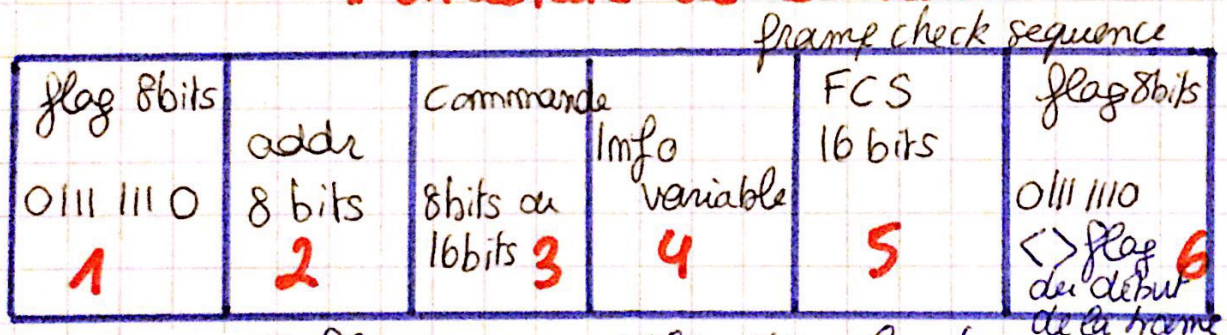 frame check sequence
flag 8bits
0111 1110
1
addr
8 bits
2
commande
8bits ou
16bits 3
Info
variable
4
FCS
16 bits
5
flag 8bits
0111 1110
<> flag 6
du début
de la trame